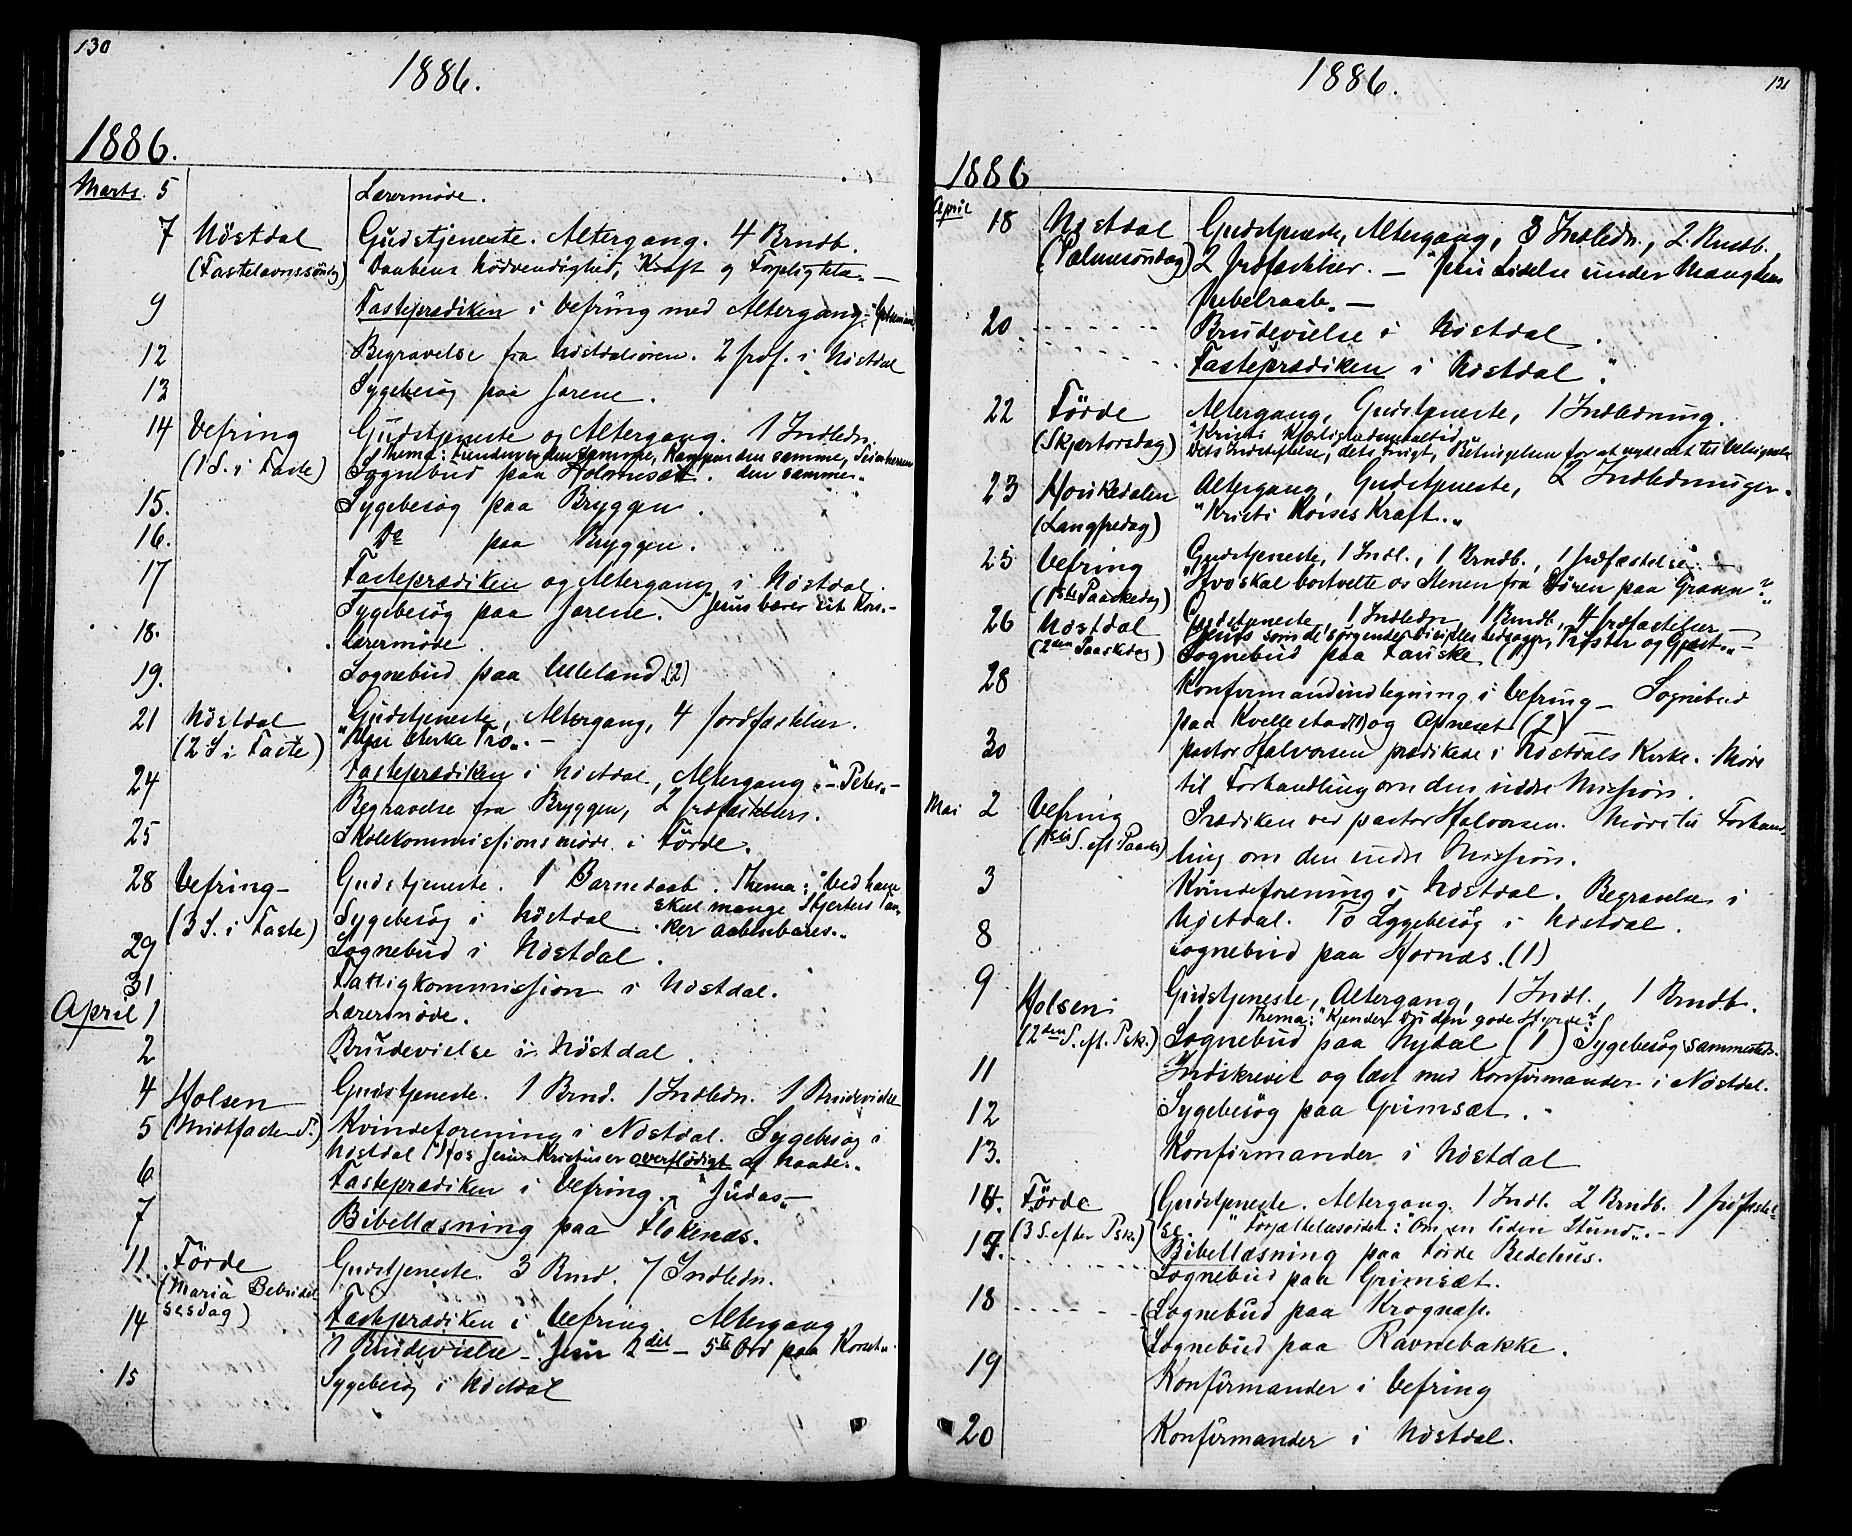 130
1886.
1886.
Marts. 5 Lærermøde.
7 Nöstdal Gudstjeneste. Altergang. 4 Brndb.
(Fastelavnssöndag) "Daabens Nödvendighed, Kraft og Forpligtelse" —
9 Fasteprædiken i Vefring med Altergang
12 Begravelse fra Nöstdalsören. 2 Jrdf. i Nöstdal
13 Sygebesög paa Jarene.
14 Vefring Gudstjeneste og Altergang. 1 Indledn.
(1 S. i Faste) Thema: Fienden den samme, Kampen den samme, Seierherren
Sognebud paa Holmesæt. den samme".
15. Sygebesög paa Bryggen.
16. Do paa Bryggen.
17 Fasteprædiken og Altergang i Nöstdal.
Sygebesög paa Jarene. "Jesus bærer sit Kors" -
18. Lærermöde.
19. Sognebud paa Ulleland (2)
21 Nöstdal Gudstjeneste, Altergang, 4 Jordfæstelser.
(2 S i Faste) "Den sterke Tro". -
24 Fasteprædiken i Nöstdal, Altergang "- Peter" -
Begravelse fra Bryggen, 2 Jrdfæstelser.
25 Skolekommissionsmöde i Förde.
28 Vefring - Gudstjeneste. 1 Barnedaab. Thema: "Ved ham
skal mange Hjerters Tan-
(3 S. i Faste) Sygebesög i Nöstdal. ker aabenbares".
29 Sognebud i Nöstdal.
31 Fattigkommission i Nöstdal.
April 1 Lærermöde.
2 Brudevielse i Nöstdal.
4 Holsen Gudstjeneste. 1 Brnd. 1 Indledn. 1 Brudevielse
5 (Midtfaste S.) Kvindeforening i Nöstdal. Sygebesög i
Nöstdal "Hos Jesus Kristus er overflödigt af Naade".
6 Fasteprædiken i Vefring. "Judas" -
7 Bibellæsning paa Flokenæs.
11 Förde Gudstjeneste 3 Brnd. 7 Indledn.
(Marià Bebudel
sesdag)
14 Fasteprædiken i Vefring Altergang
1 Brudevielse - "Jesu 2det - 5te Ord paa Korset".
15 Sygebesög i Nöstdal
131
1886.
1886
April
18 Nöstdal Gudstjeneste, Altergang, 3 Indledn., 2 Brndb.
(Palmesöndag) 2 Jrdfæstelser. - "Jesu Lidelse under Mængdens
Jubelraab". -
20. Brudevielse i Nöstdal.
Fasteprædiken i Nöstdal.
22 Förde Altergang, Gudstjeneste, 1 Indledning.
(Skjærtorsdag) "Kristi Kjærlighedsmaaltid,
Dets Indstiftelse, dets Frugt, Betingelsen for at nyde det til Velsignelse
23 Houkedalen Altergang, Gudstjeneste, 2 Indledninger.
(Langfredag) "Kristi Korses Kraft".
25 Vefring Gudstjeneste, 1 Indl., 1 Brndb., 1 Jrdfæstelse. -
(1ste Paaskedag) "Hvo skal bortvelte os Stenen fra Dören paa Graven?"
26 Nöstdal Gudstjeneste, 1 Indledn, 1 Brndb., 4 Jrdfæstelser. -
(2den Paaskedag) "Jesus som de sörgende Disciples Ledsager, Tröster og Gjæst". -
Sognebud paa Fauske (1)
28 Konfirmandindtegning i Vefring - Sognebud
paa Kvellestad (1) og Apneset (2)
30 Pastor Halvorsen prædikede i Nöstdals Kirke. Möde
til Forhandling om den indre Mission.
Mai 2 Vefring Prædiken ved pastor Halvorsen. Möde til Forhand-
(1ste S. eft Paaske) ling om den indre Mission.
3 Kvindeforening i Nöstdal. Begravelse i
Nöstdal. To Sygebesög i Nöstdal.
8 Sognebud paa Hornæs. (1)
9 Holsen Gudstjeneste, Altergang, 1 Indl., 1 Brndb.
Thema: "Kjender du den gode Hyrde?"
(2den S. eft. Psk.) Sognebud paa Nydal (1) Sygebesög sammesteds.
11 Indskrevet og læst med Konfirmander i Nöstdal.
12 Sygebesög paa Grimsæt.
13. Konfirmander i Nöstdal
16. Förde Gudstjeneste. Altergang. 1 Indl. 2 Brndb. 1 Jrdfæstel-
(3 S. efter Psk.) se. "Forjættelsesordet: "Om en liden Stund". -
17. Bibellæsning paa Förde Bedehus.
Sognebud paa Grimsæt.
18 Sognebud paa Krognæs.
Sognebud paa Ravnebakke.
19 Konfirmander i Vefring
20 Konfirmander i Nöstdal.